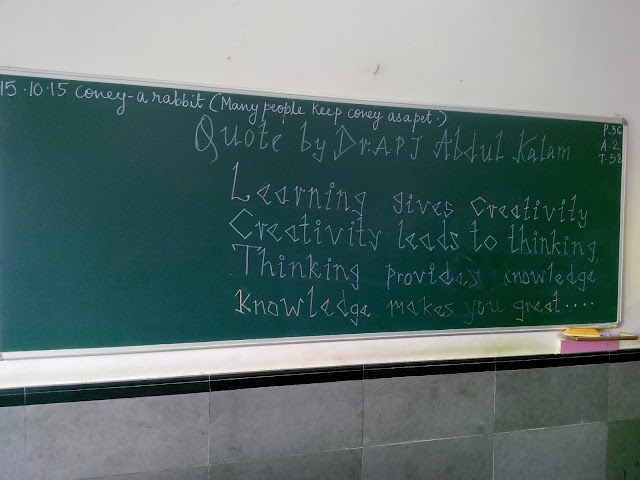 15.10.15 coney-a rabbit (Many people keep coney as a pet.)
P.56
A.2
T.58
Quote by Dr. A P J Abdul Kalam
Learning gives Creativity
Creativity leads to thinking,
Thinking provides knowledge
Knowledge makes you great....